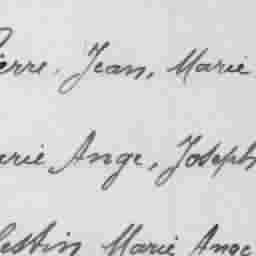 Pierre. Jean, Marie
Marie Ange, Joseph
lestin Marie Ange